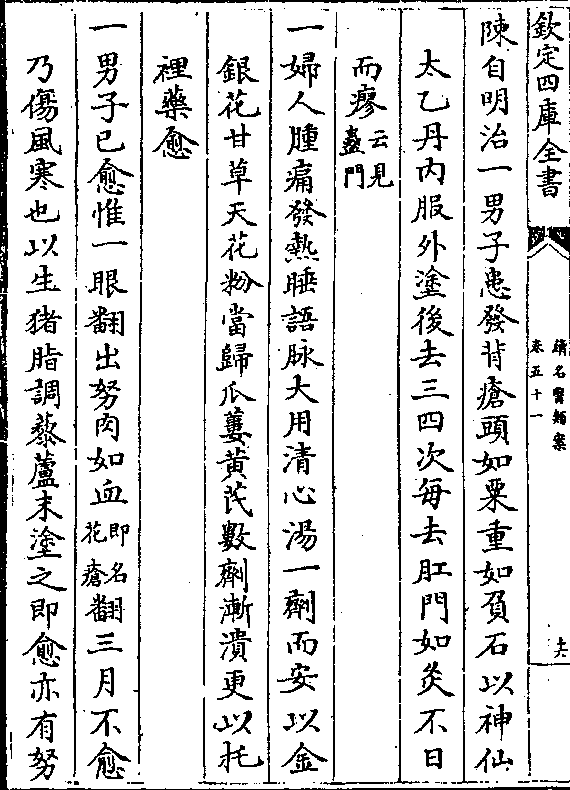 欽定四庫全書
續名醫類案
卷五十一
十六
陳自明治一男子患發背瘡頭如粟重如負石以神仙
太乙丹内服外塗後去三四次每去肛門如灸不日
而瘳云見蠱門
一婦人腫痛發熱睡語脉大用清心湯一劑而安以金
銀花甘草天花粉當歸瓜蔞黄芪數劑漸潰更以托
裡藥愈
一男子已愈惟一眼翻出努肉如血即名翻花瘡三月不愈
乃傷風寒也以生猪脂調藜蘆末塗之即愈亦有努